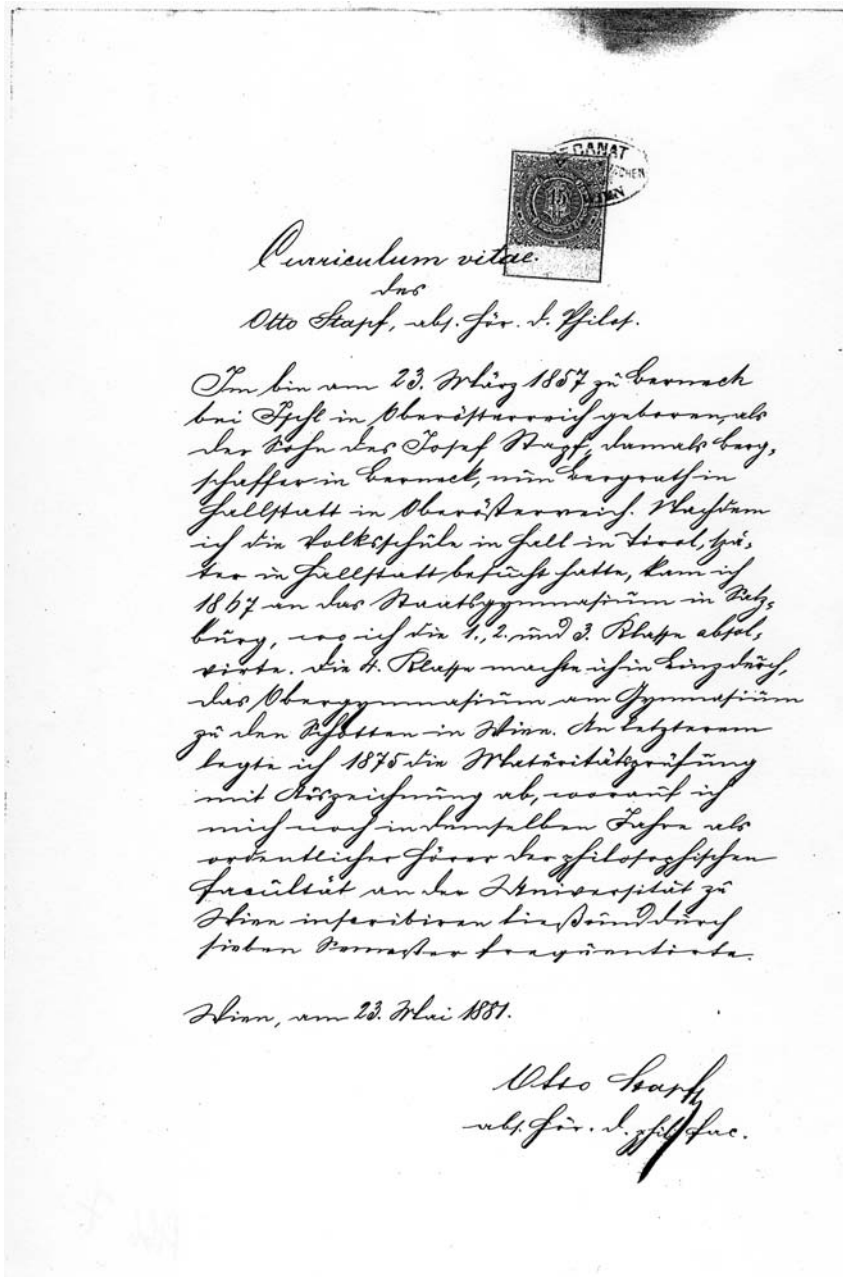 DECANAT
WIEN
15
Curriculum vitae.
des
Otto Stapf, abs. Hör. d. Philos.
Ich bin am 23. März 1857 zu Berneck
bei Ischl in Oberösterreich geboren, als
der Sohn des Josef Stapf, damals Berg-
schaffer in Berneck, nun Bergrath in
Hallstatt in Oberösterreich. Nachdem
ich die Volksschule in Hall in Tirol, spä-
ter in Hallstatt besucht hatte, kam ich
1867 an das Staatsgymnasium in Salz-
burg, wo ich die 1., 2. und 3. Klasse absol-
virte. Die 4. Klasse machte ich in Linz durch,
das Obergymnasium am Gymnasium
zu den Schotten in Wien. An letzterem
legte ich 1875 die Maturitätsprüfung
mit Auszeichnung ab, worauf ich
mich noch in demselben Jahre als
ordentlicher Hörer der philosophischen
Facultät an der Universität zu
Wien inscribiren ließ und durch
sieben Semester frequentirte.
Wien, am 23. Mai 1881.
Otto Stapf
abs. Hör. d. phil. Fac.